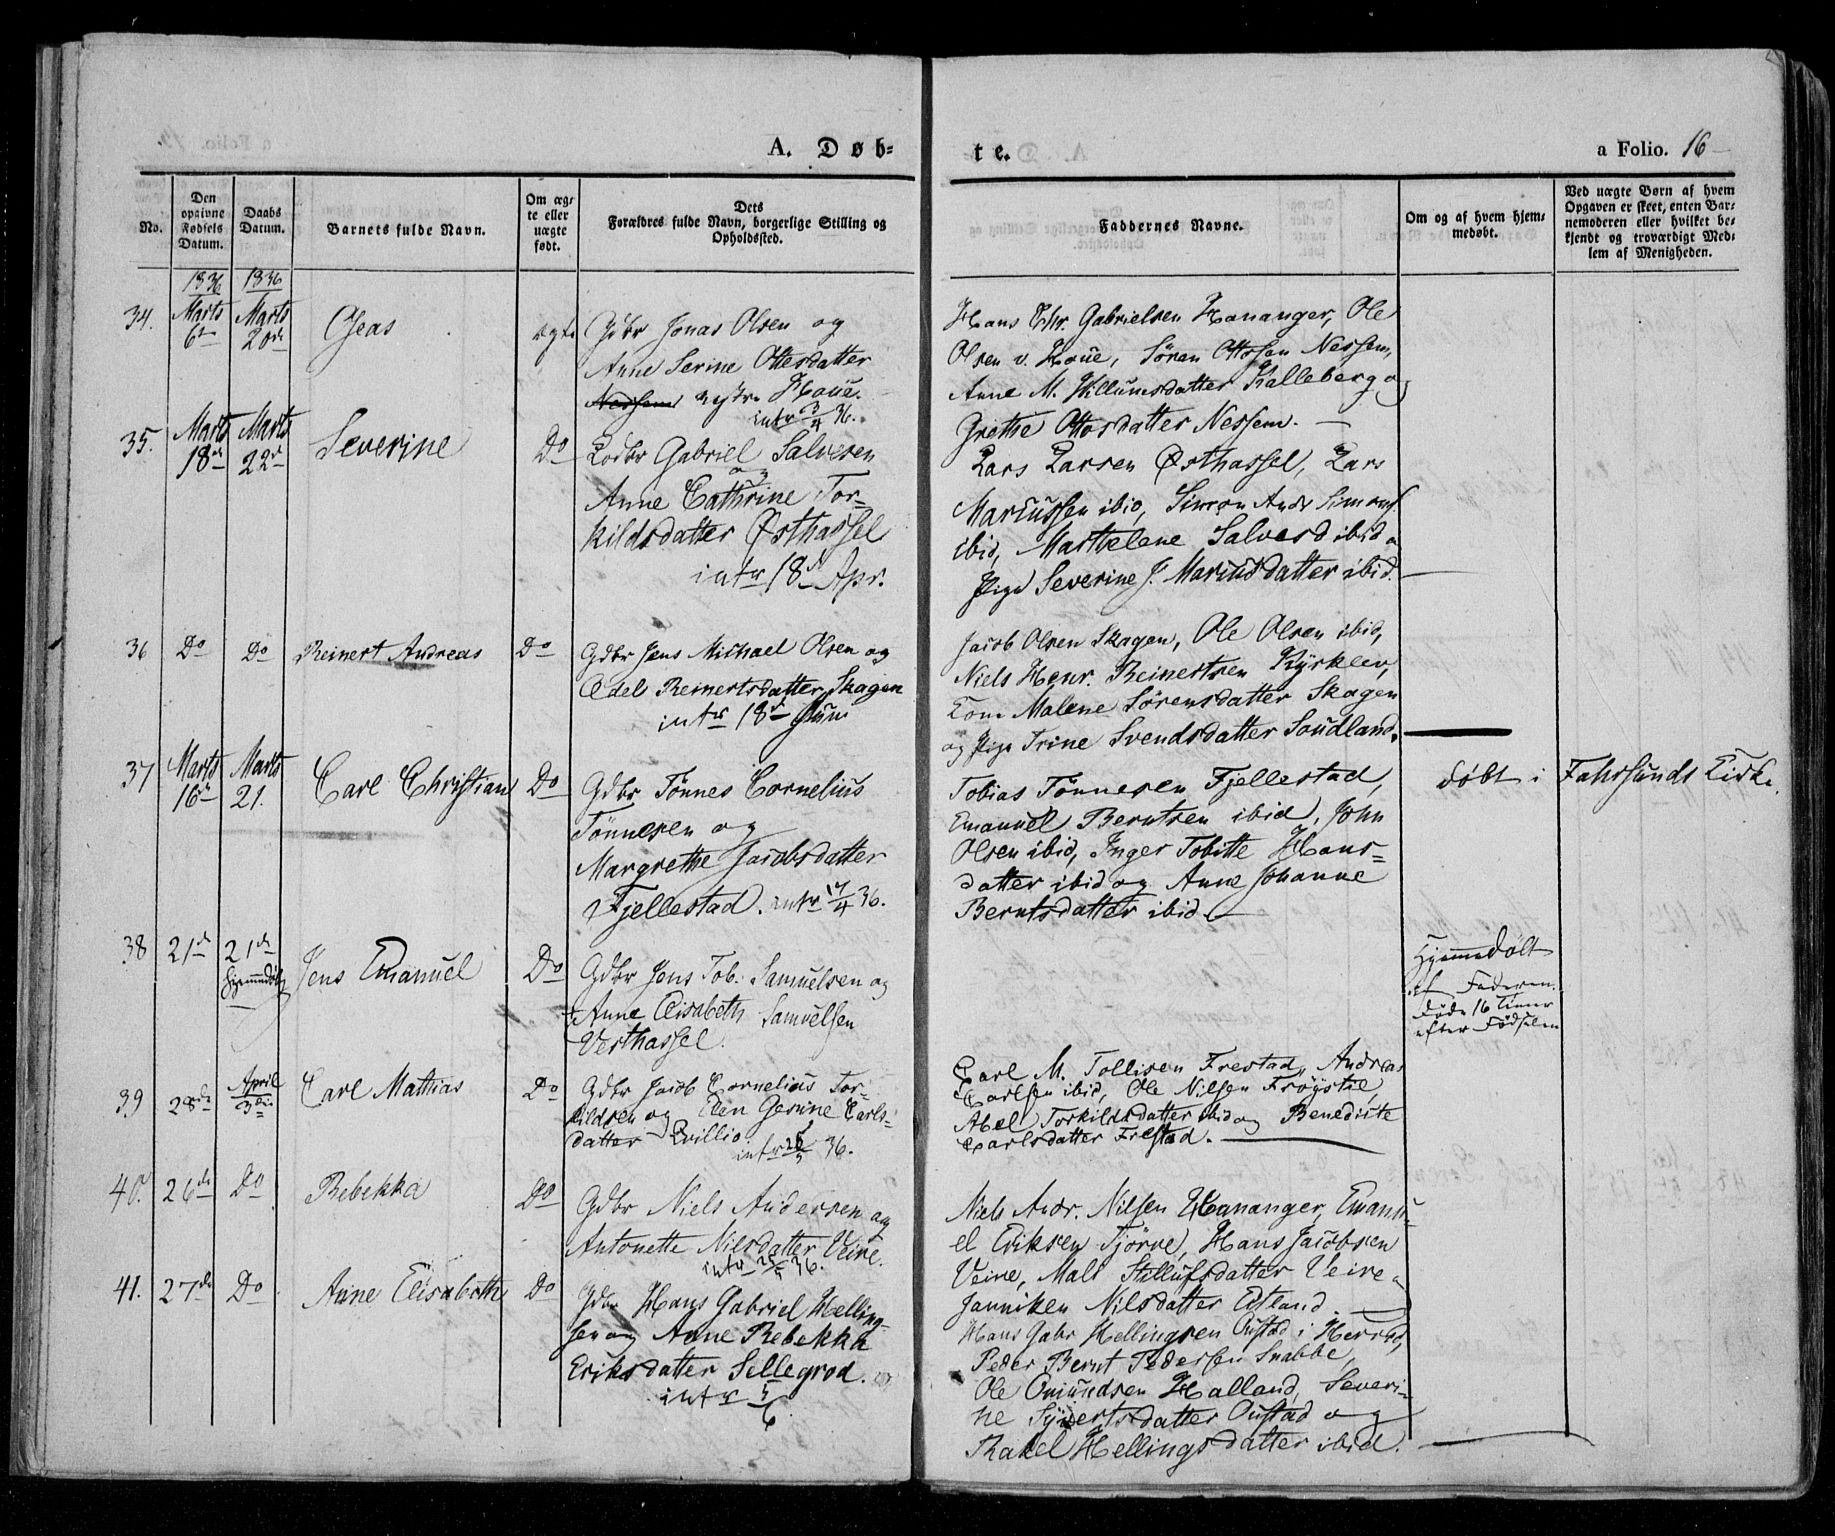 A. Døb-
No.
Den opgivne Fødsels Datum.
Daabs Datum.
Barnets fulde Navn.
Om ægte eller uægte født.
Dets
Forældres fulde Navn, borgerlige Stilling og
Opholdssted.
1836 1836
34. Marts 6te Marts 20de Gjeas ægte Gdbr Jonas Olsen og
Anne Serine Ottesdatter
Nessem vestre Houe.
intr 3/4 36.
35. Marts 18de Marts 22de Severine Do Lodbr Gabriel Salvesen
og
Anne Cathrine Tor-
kildsdatter Østhassel
intr 18de Apr.
36 Do Do Reinert Andreas Do Gdbr Jens Michael Olsen og
Edel Reinertsdatter Skagen
intr 18de Juni
37 Marts 16de Marts 21. Carl Christian Do Gdbr Tönnes Cornelius
Tönnesen og
Margrethe Jacobsdatter
Fjellestad. intr 17/4 36.
38 21de 21de Hjemmedøbt Jens Emanuel Do Gdbr Jens Tob. Samuelsen og
Anne Elisabeth Samuelsen
Vesthassel.
39 28de April 3die Carl Mathias Do Gdbr Jacob Cornelius Tor-
kildsen og Elen Gerine Carls-
datter Qvillio
intr 36.
40. 26de Do Rebekka Do Gdbr Niels Andersen og
Antonette Nilsdatter Veire.
intr 36.
41. 27de Do Anne Elisabeth Do Gdbr Hans Gabriel Helling-
sen og Anne Rebekka
Eriksdatter Sellegrod.
intr 5/6
te.
a Folio. 16
Faddernes Navne.
Om og af hvem hjem-
medøbt.
Ved uægte Børn af hvem
Opgaven er skeet, enten Bar-
nemoderen eller hvilket be-
kjendt og troværdigt Med-
lem af Menigheden.
Hans Chr. Gabrielsen Hananger, Ole
Olsen v. Houe, Sören Ottosen Nessem,
Anne M. Killumsdatter Kalleberg og
Grethe Ottosdatter Nessem.
Lars Larsen Østhassel, Lars
Mariussen ibid, Simon Andr Simons
ibid, Marthelene Salvesd ibid o
Pige Severine J. Mariusdatter ibid.
Jacob Olsen Skagen, Ole Olsen ibid,
Niels Henr. Reinertsen Kjörklev,
Kone Malene Sörensdatter Skagen
og Pige Trine Svendsdatter Soudland.
Tobias Tönnesen Fjellestad,
Emanuel Berntsen ibid, John
Olsen ibid, Inger Tobitte Hans-
datter ibid og Anne Johanne
Berntsdatter ibid.
døbt i Fahrsunds Kirke.
Hjemmedøbt
af Faderen.
døde 16 Timer
efter Fødselen
Carl M. Tollisen Frestad, Andreas
Carlsen ibid, Ole Nilsen Fröystöl,
Abel Torkildsdatter ibid og Benedicte
Carlsdatter Frestad.
Niels Andr. Nilsen Hananger, Emanu-
el Eriksen Tjörve, Hans Jacobsen
Veire, Mali Stillufsdatter Veire o
Janniken Nilsdatter Etland.
Hans Gabr Hellingsen Oustad i Herred,
Peder Bernt Pedersen Snabbe,
Ole Omundsen Halland, Severi-
ne Syvertsdatter Oustad og
Rakel Hellingsdatter ibid.